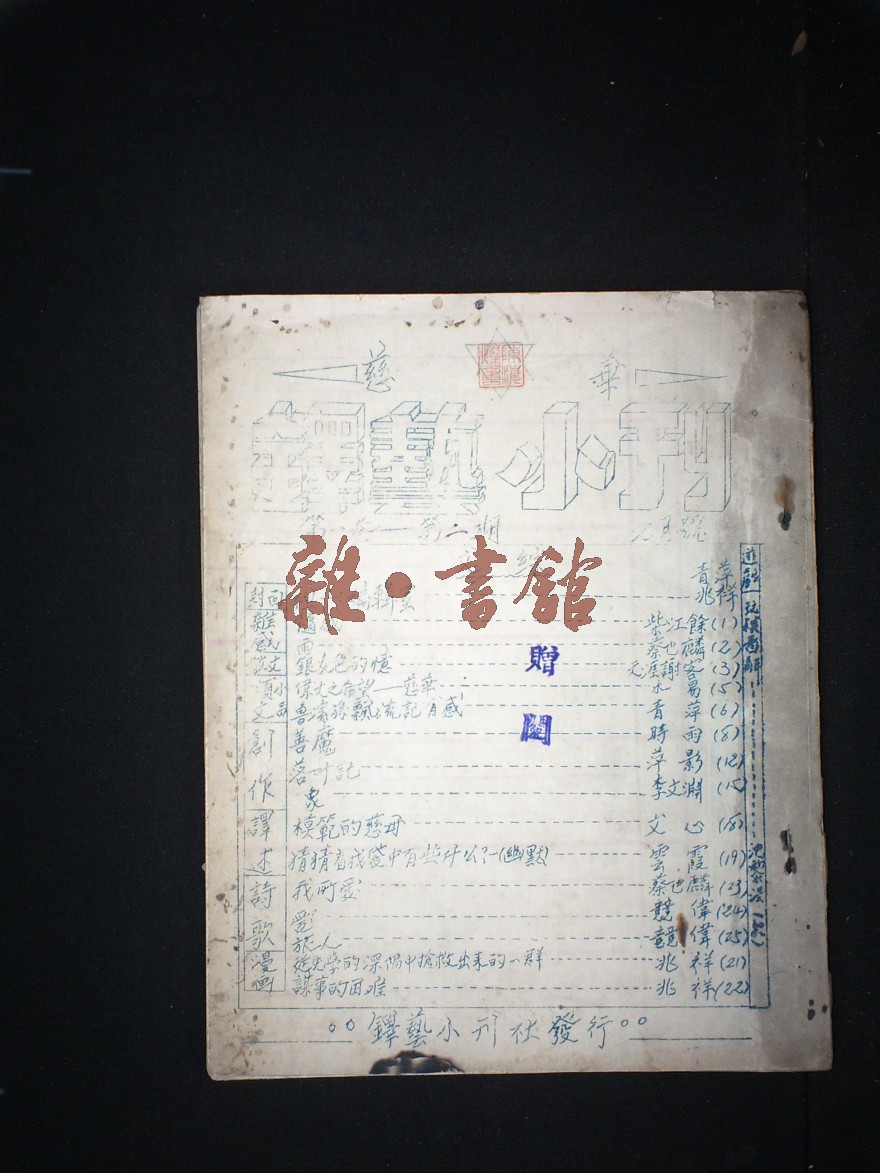 慈 華
鐸藝小刊
第一 第二期 七月號
雜·書館
青萍
封面 兆祥
雜感 柴江餘(1)
雨 蔡也麟(2)
散文 銀灰色的憶 謝客(3)
小品 偉大之希望——慈華 水易(5)
魯濱孫飄流記有感 青萍(6)
創作 善魔 時雨(8)
落叶記 萍影(12)
象 李文淵(15)
譯述 模範的慈母 文心(18)
猜猜看我袋中有些什么?—(幽默) 雲霞(19)
詩歌 我所愛 蔡也麟(23)
競偉(24)
旅人 競偉(25)
漫画 從失學的深渦中搶救出來的一群 兆祥(21)
謀事的困难 兆祥(22)
贈閱
鐸藝小刊社發行